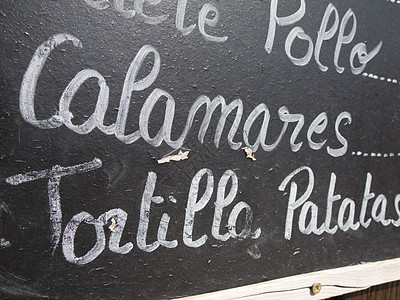 Pollo
Calamares
Tortilla Patatas